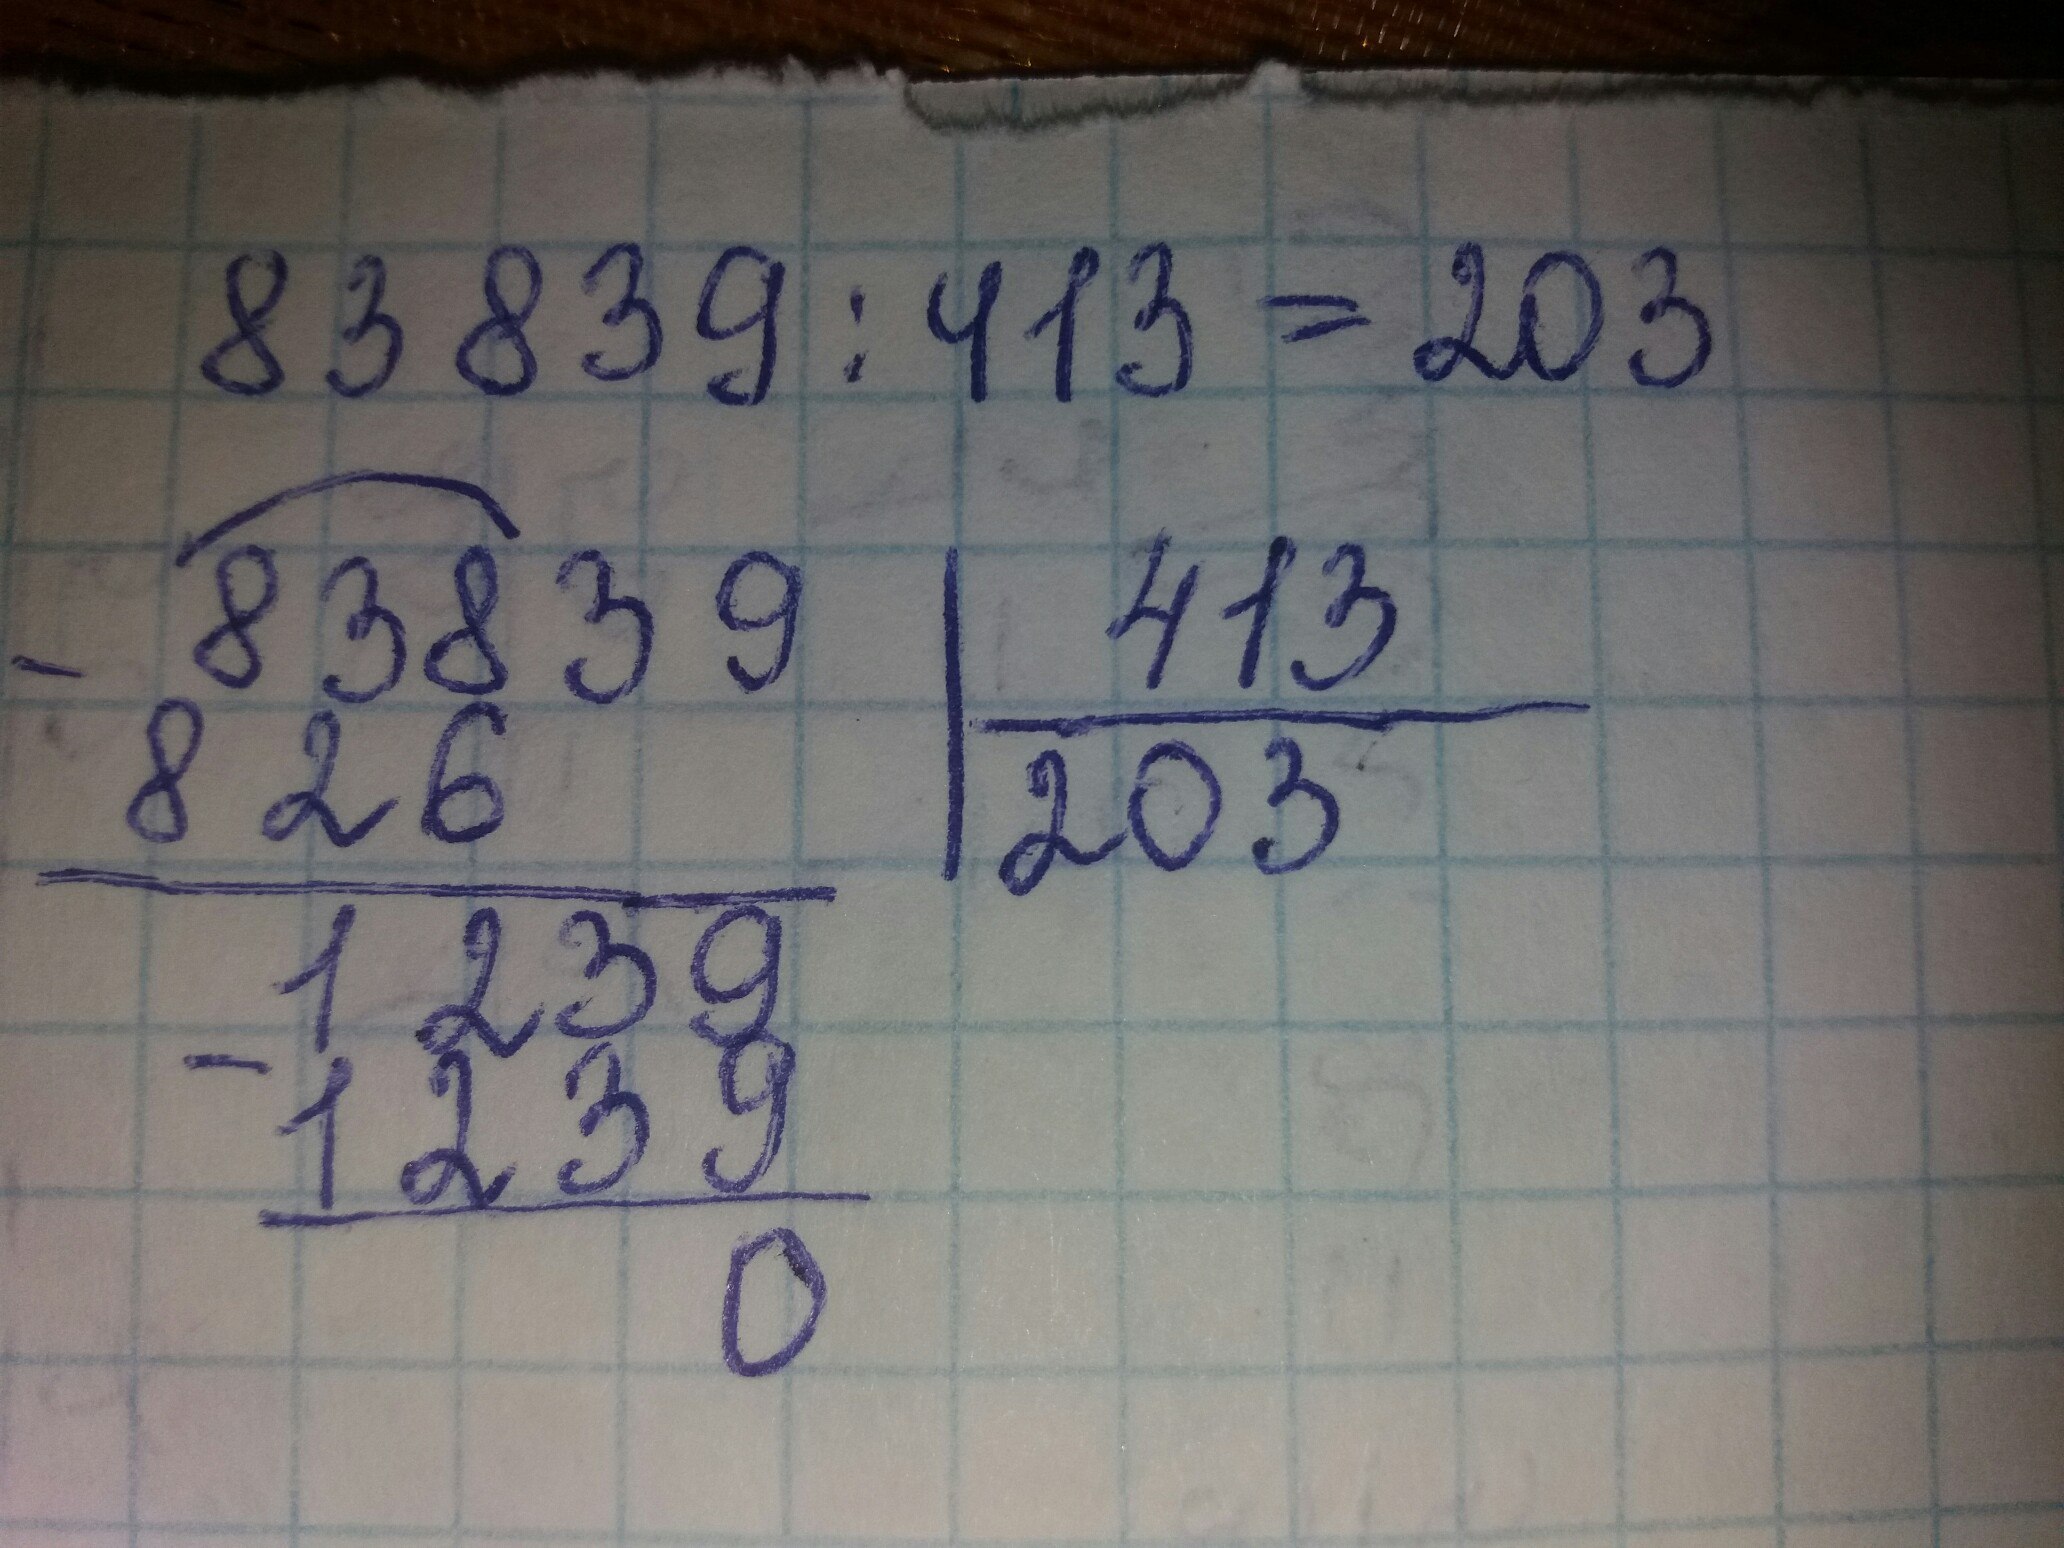 83839:413=203
- 83839 | 413
826 | 203
1239
- 1239
0